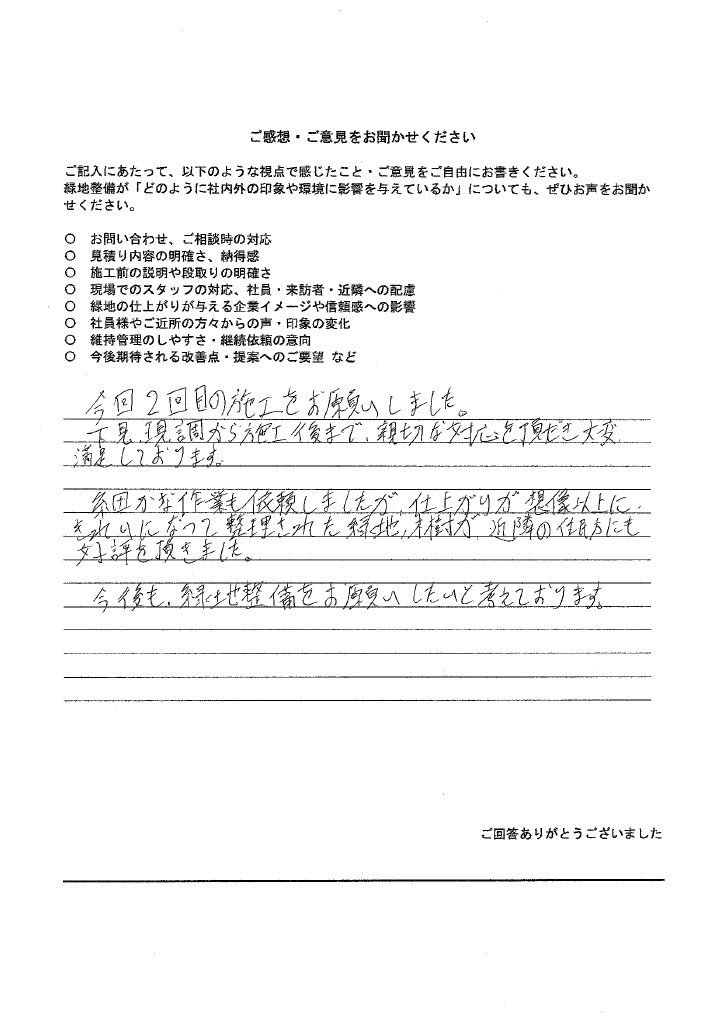 ご感想・ご意見をお聞かせください
ご記入にあたって、以下のような視点で感じたこと・ご意見をご自由にお書きください。
緑地整備が「どのように社内外の印象や環境に影響を与えているか」についても、ぜひお声をお聞か
せください。
○ お問い合わせ、ご相談時の対応
○ 見積り内容の明確さ、納得感
○ 施工前の説明や段取りの明確さ
○ 現場でのスタッフの対応、社員・来訪者・近隣への配慮
○ 緑地の仕上がりが与える企業イメージや信頼感への影響
○ 社員様やご近所の方々からの声・印象の変化
○ 維持管理のしやすさ・継続依頼の意向
○ 今後期待される改善点・提案へのご要望 など
今回2回目の施工をお願いしました。
下見、現調から施工後まで、親切な対応を頂だき大変
満足しております。
細かな作業も依頼しましたが、仕上がりが想像以上に
きれいになって整理された緑地、木樹が、近隣の住民方にも
好評を頂きました。
今後も、緑地整備をお願いしたいと考えております。
ご回答ありがとうございました